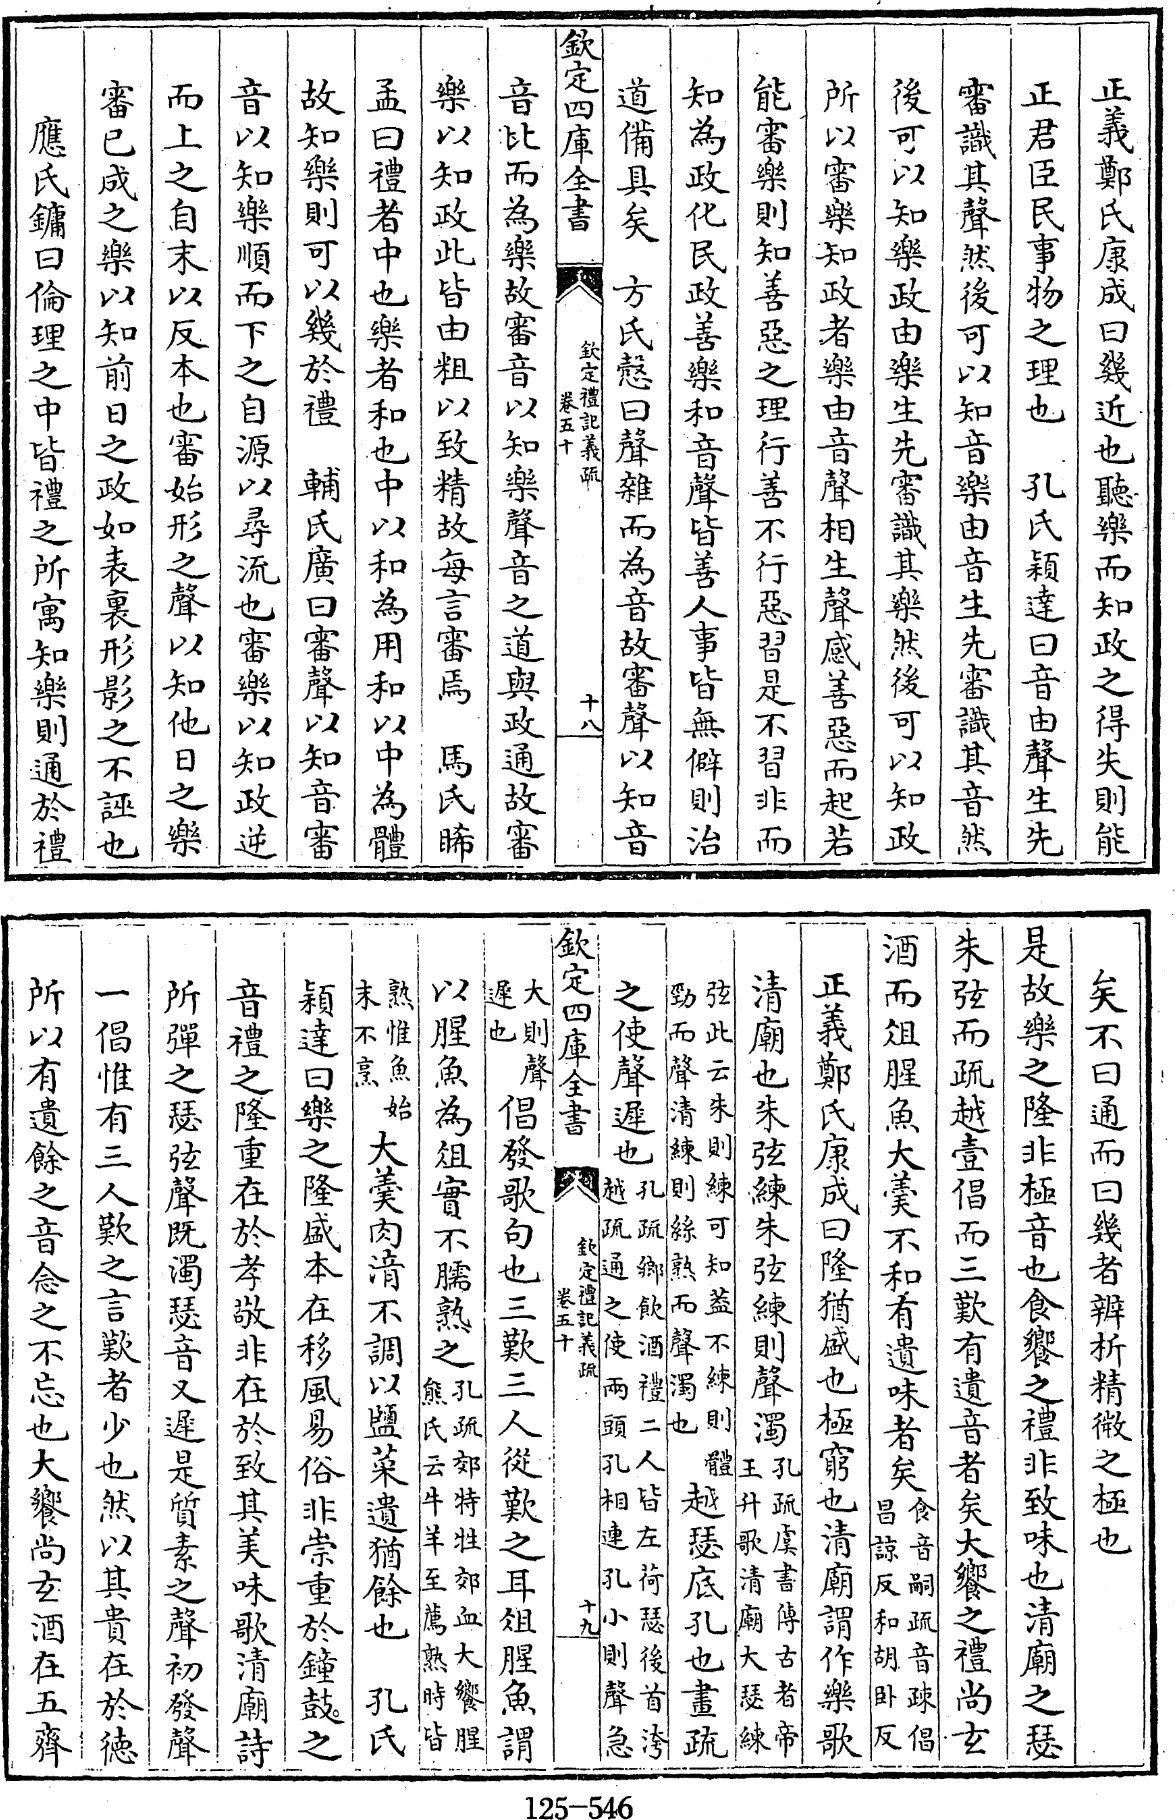 正義鄭氏康成曰幾近也聽樂而知政之得失則能
正君臣民事物之理也　孔氏穎達曰音由聲生先
審識其聲然後可以知音樂由音生先審識其音然
後可以知樂政由樂生先審識其樂然後可以知政
所以審樂知政者樂由音聲相生聲感善惡而起若
能審樂則知善惡之理行善不行惡習是不習非而
知為政化民政善樂和音聲皆善人事皆無僻則治
道備具矣　方氏慤曰聲雜而為音故審聲以知音
欽定四庫全書　欽定禮記義疏　卷五十　十八
音比而為樂故審音以知樂聲音之道與政通故審
樂以知政此皆由粗以致精故每言審焉　馬氏晞
孟曰禮者中也樂者和也中以和為用和以中為體
故知樂則可以幾於禮　輔氏廣曰審聲以知音審
音以知樂順而下之自源以尋流也審樂以知政逆
而上之自末以反本也審始形之聲以知他日之樂
審已成之樂以知前日之政如表裏形影之不誣也
應氏鏞曰倫理之中皆禮之所寓知樂則通於禮
矣不曰通而曰幾者辨析精微之極也
是故樂之隆非極音也食饗之禮非致味也清廟之瑟
朱弦而疏越壹倡而三歎有遺音者矣大饗之禮尚玄
酒而俎腥魚大羹不和有遺味者矣食音嗣疏音疎倡昌諒反和胡卧反
正義鄭氏康成曰隆猶盛也極窮也清廟謂作樂歌
清廟也朱弦練朱弦練則聲濁孔疏虞書傳古者帝王升歌清廟大瑟練
弦此云朱則練可知蓋不練則體勁而聲清練則絲熟而聲濁也越瑟底孔也畫疏
之使聲遲也孔疏鄉飲酒禮二人皆左荷瑟後首挎越疏通之使兩頭孔相連孔小則聲急
欽定四庫全書　欽定禮記義疏　卷五十　十九
大則聲遲也倡發歌句也三歎三人從歎之耳俎腥魚謂
以腥魚為俎實不臑熟之孔疏郊特牲郊血大饗腥熊氏云牛羊至薦熟時皆
熟惟魚始末不烹大羹肉湆不調以鹽菜遺猶餘也　孔氏
穎達曰樂之隆盛本在移風易俗非崇重於鐘鼓之
音禮之隆重在於孝敬非在於致其美味歌清廟詩
所彈之瑟弦聲既濁瑟音又遲是質素之聲初發聲
一倡惟有三人歎之言歎者少也然以其貴在於德
所以有遺餘之音念之不忘也大饗尚玄酒在五齊
125-546